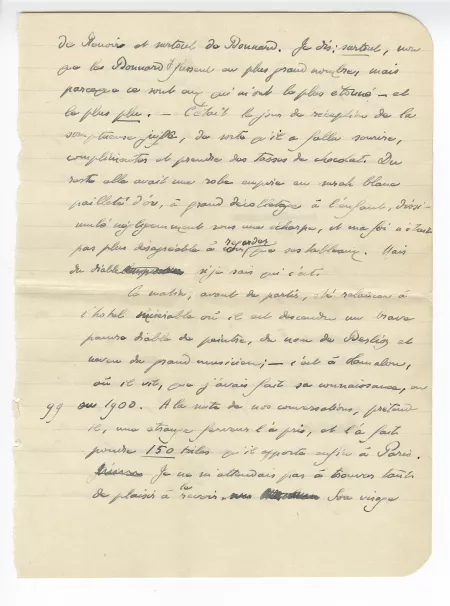 de Renoir et surtout de Bonnard. Je dis: surtout, non
que les Bonnard fussent en plus grand nombre, mais
parce que ce sont eux qui m'ont le plus étonné — et
le plus plu. — C'était le jour de réception de la
somptueuse, de sorte qu'il a fallu sourire,
complimenter et prendre des tasses de chocolat. Du
reste elle avait une robe empire en surah blanc
pailleté d'or, à grand décolletage à l'enfant, dissi-
mulé négligemment sous une écharpe, et ma foi n'était
pas plus désagréable à regarder que ses tableaux. Mais
du diable si je sais qui c'est.
Ce matin, avant de partir, été relancer à
l'hôtel misérable où il est descendu un brave
pauvre diable de peintre, du nom de Berlioz et
neveu du grand musicien; — c'est à Lamalou,
où il vit, que j'avais fait sa connaissance, en
99 ou 1900. A la suite de nos conversations, prétend
il, une étrange ferveur l'a pris, et l'a fait
peindre 150 toiles qu'il apporte enfin à Paris.
Je ne m'attendais pas à trouver tant
de plaisir à le revoir. Son visage